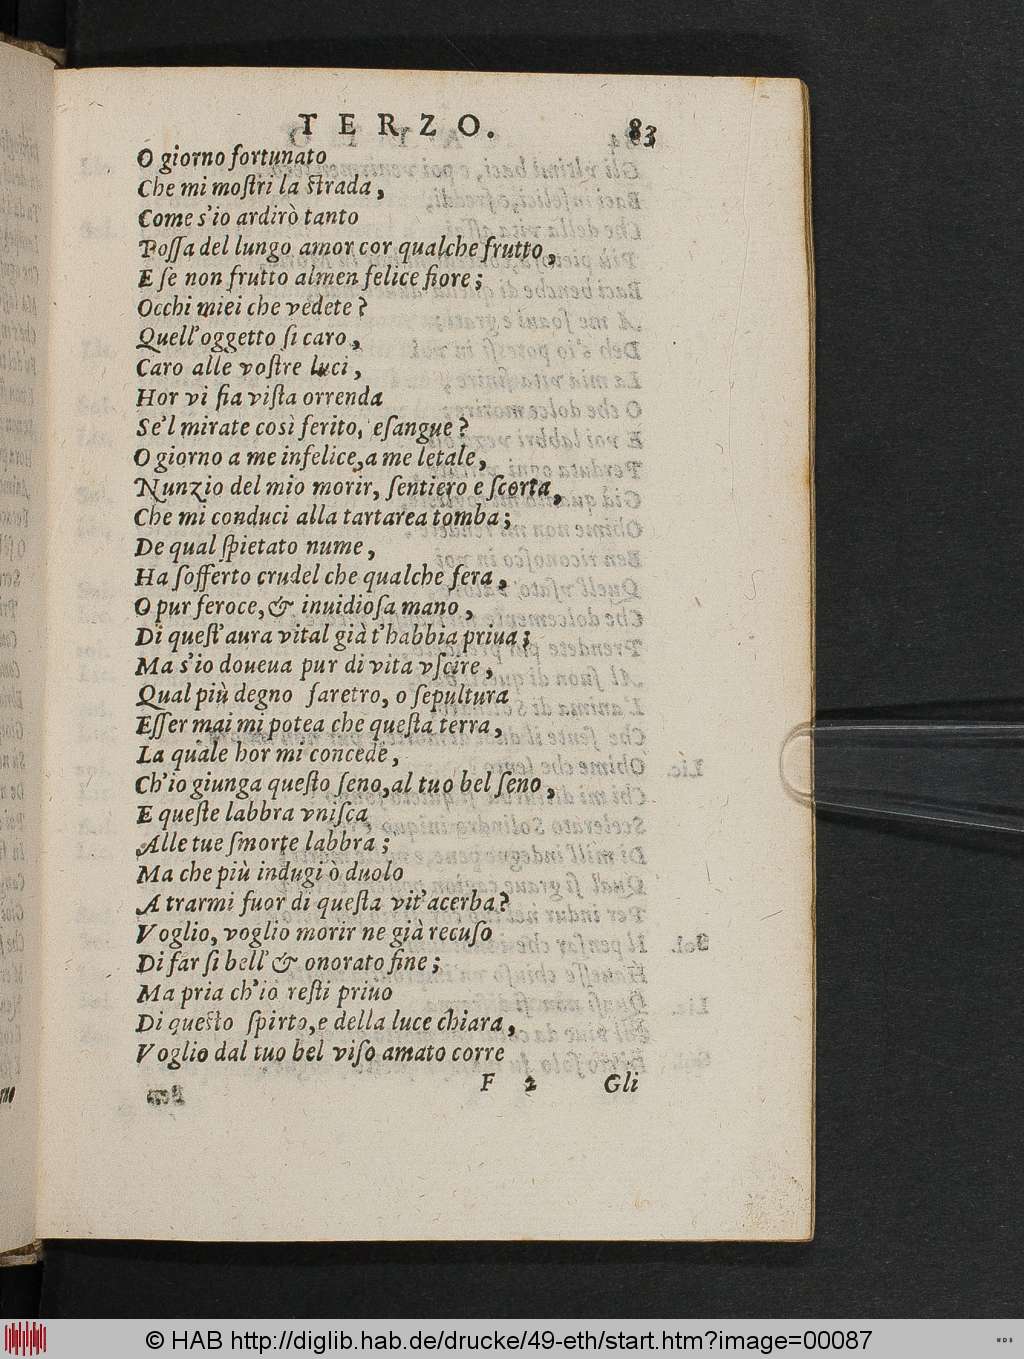 TERZO. 83
O giorno fortunato
Che mi moſtri la ſtrada,
Come s'io ardirò tanto
Poſſa del lungo amor cor qualche frutto,
E ſe non frutto almen felice fiore;
Occhi miei che vedete?
Quell'oggetto ſi caro,
Caro alle voſtre luci,
Hor vi ſia viſta orrenda
Se'l mirate così ferito, eſangue?
O giorno a me infelice, a me letale,
Nunzio del mio morir, ſentiero e ſcorta,
Che mi conduci alla tartarea tomba;
De qual ſpietato nume,
Ha ſofferto crudel che qualche fera,
O pur feroce, & inuidioſa mano,
Di queſt'aura vital già t'habbia priua;
Ma s'io doueua pur di vita vſcire,
Qual più degno faretro, o ſepultura
Eſſer mai mi potea che queſta terra,
La quale hor mi concede,
Ch'io giunga queſto ſeno, al tuo bel ſeno,
E queſte labbra vniſca
Alle tue ſmorte labbra;
Ma che più indugi ò duolo
A trarmi fuor di queſta vit'acerba?
Voglio, voglio morir ne già recuſo
Di far ſi bell' & onorato fine;
Ma pria ch'io reſti priuo
Di queſto ſpirto, e della luce chiara,
Voglio dal tuo bel viſo amato corre
F 2 Gli
© HAB http://diglib.hab.de/drucke/49-eth/start.htm?image=00087